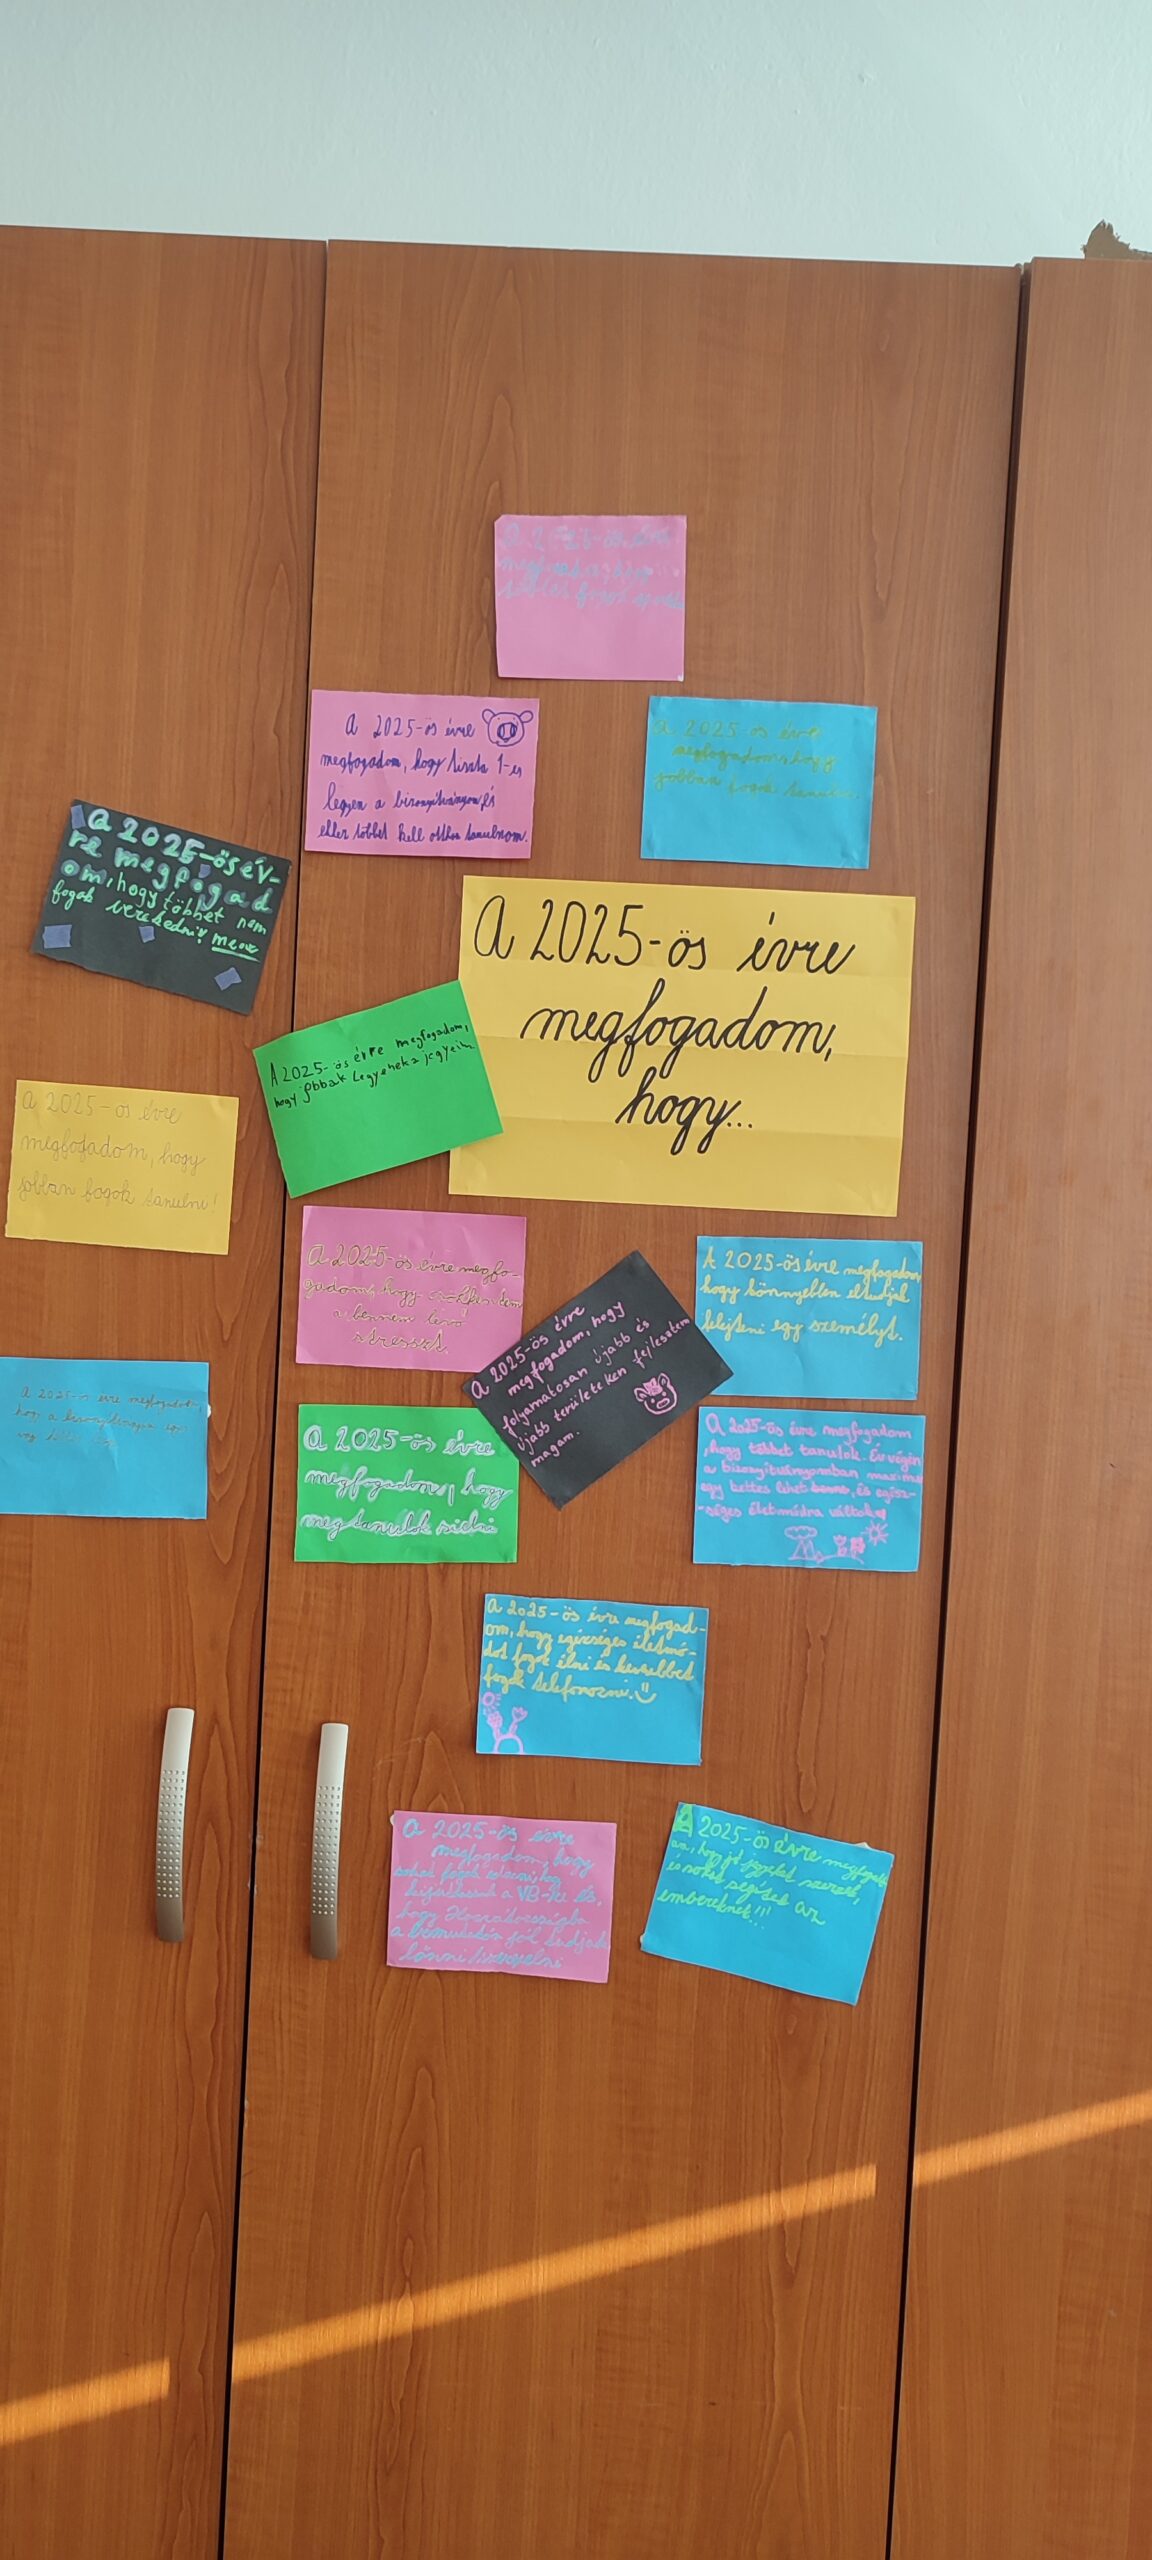 A 2025-ös évre
megfogadom, hogy
többet fogok
A 2025-ös évre
megfogadom, hogy tiszta 1-es
legyen a bizonyítványom és
ehhez többet kell otthon tanulnom.
A 2025-ös évre
megfogadom, hogy
jobban fogok tanulni.
A 2025-ös év-
re megfogad
om, hogy többet nem
fogok verekedni!
A 2025-ös évre
megfogadom,
hogy...
A 2025-ös évre megfogadom,
hogy jobbak legyenek a jegyeim
A 2025-ös évre
megfogadom, hogy
jobban fogok tanulni!
A 2025-ös évre megfo-
gadom, hogy csökkentem
a bennem lévő
stresszt.
A 2025-ös évre
megfogadom, hogy
folyamatosan újabb és
újabb területeken fejlesztem
magam.
A 2025-ös évre megfogadom,
hogy könnyebben eltudjak
felejteni egy személyt.
A 2025-ös évre megfogadom,
hogy a bizonyítványom
A 2025-ös évre
megfogadom, hogy
megtanulok síelni
A 2025-ös évre megfogadom
, hogy többet tanulok. Év végén
a bizonyítványomban maximum
egy kettes lehet benne, és egész-
-séges életmódra váltok
A 2025-ös évre megfogad-
om, hogy egészséges életmó-
dot fogok élni és kevesebbet
fogok telefonozni.
A 2025-ös évre
megfogadom, hogy
sokat fogok edzeni, hogy
kijuthassak a VB-re és,
hogy Horvátországba
a bemutatón jól tudjak
lőnni/szerepelni
A 2025-ös évre megfogad-
om, hogy jó jegyeket szerzek,
és sokat segítek az
embereknek!!!